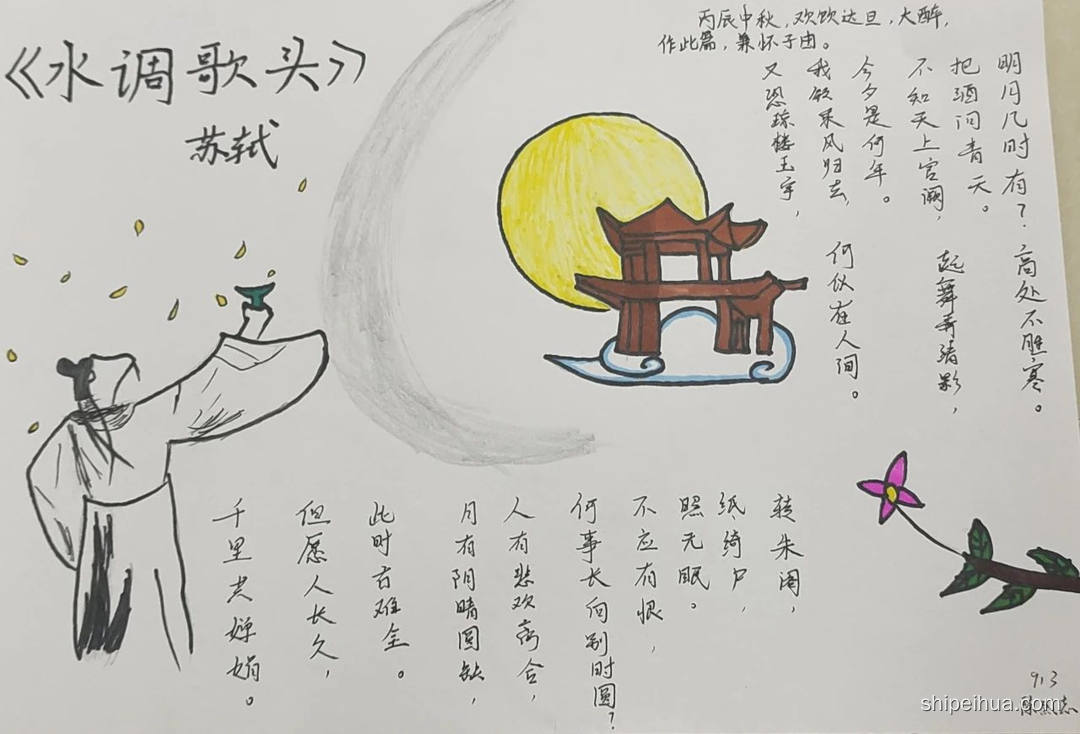 《水调歌头》
苏轼
丙辰中秋，欢饮达旦，大醉，
作此篇，兼怀子由。
明月几时有？
把酒问青天。
不知天上宫阙，
今夕是何年。
我欲乘风归去，
又恐琼楼玉宇，
高处不胜寒。
起舞弄清影，
何似在人间。
转朱阁，
纸绮户，
照无眠。
不应有恨，
何事长向别时圆？
人有悲欢离合，
月有阴晴圆缺，
此时古难全。
但愿人长久，
千里共婵娟。
9.3
shipeihua.com